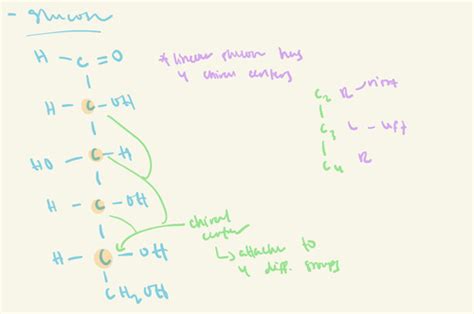 - glucose
H - C = O
* linear glucose has
4 chiral centers
H - C - OH
C2 R - right
HO - C - H
C3 L - left
H - C - OH
C4 R
chiral
center
H - C - OH
↳ attaches to
4 diff. groups
CH2OH